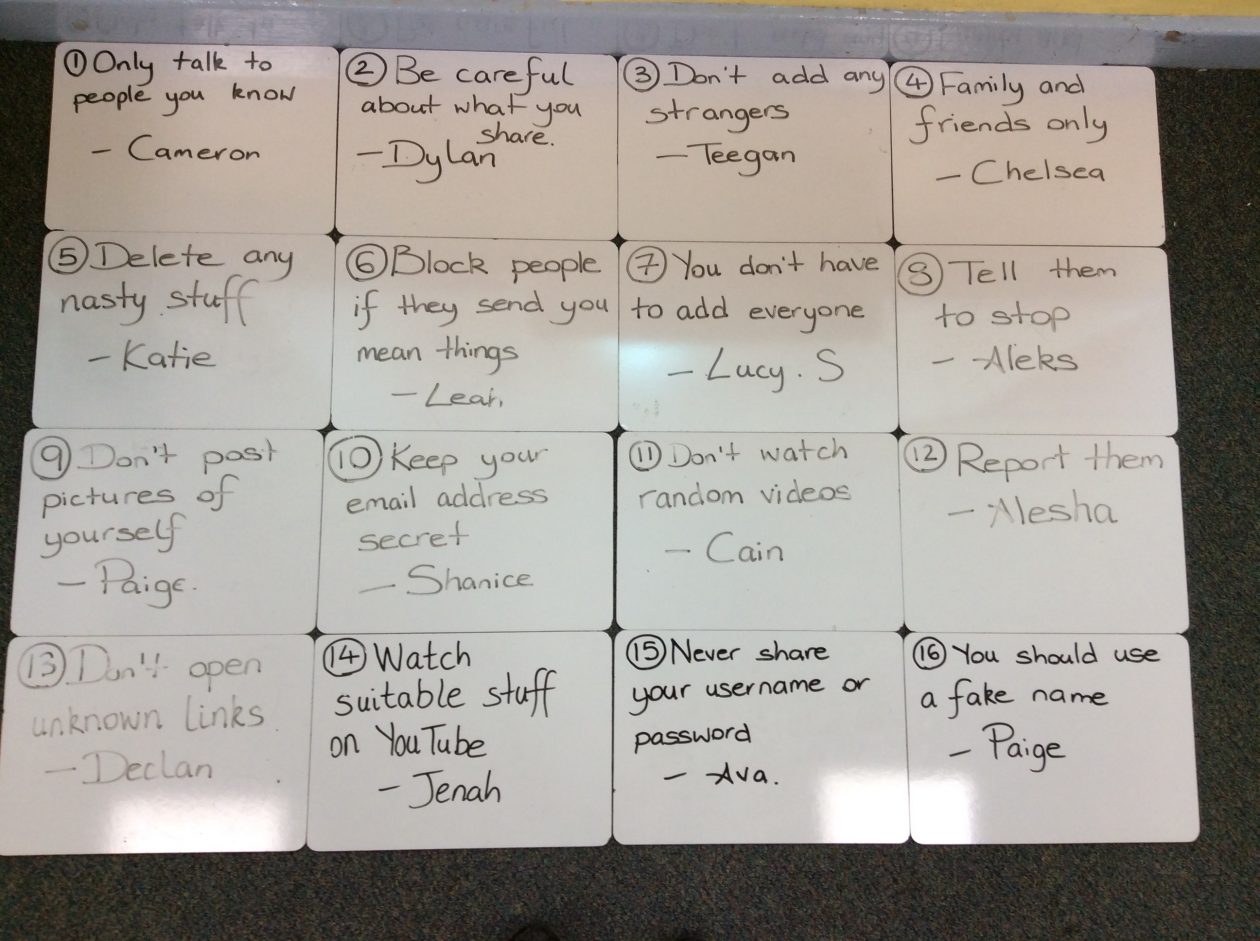 ① Only talk to
people you know
- Cameron
② Be careful
about what you
share.
- Dylan
③ Don't add any
strangers
- Teegan
④ Family and
friends only
- Chelsea
⑤ Delete any
nasty stuff
- Katie
⑥ Block people
if they send you
mean things
-
⑦ You don't have
to add everyone
- Lucy. S
⑧ Tell them
to stop
- Aleks
⑨ Don't post
pictures of
yourself
- Paige.
⑩ Keep your
email address
secret
- Shanice
⑪ Don't watch
random videos
- Cain
⑫ Report them
- Alesha
⑬ Don't open
unknown links
- Declan
⑭ Watch
suitable stuff
on YouTube
- Jenah
⑮ Never share
your username or
password
- Ava.
⑯ You should use
a fake name
- Paige